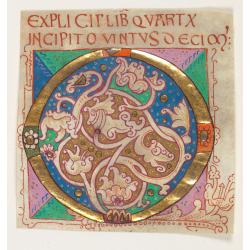 EXPLICIT LIB QVARTX
INCIPIT QVINTVS DECIM;